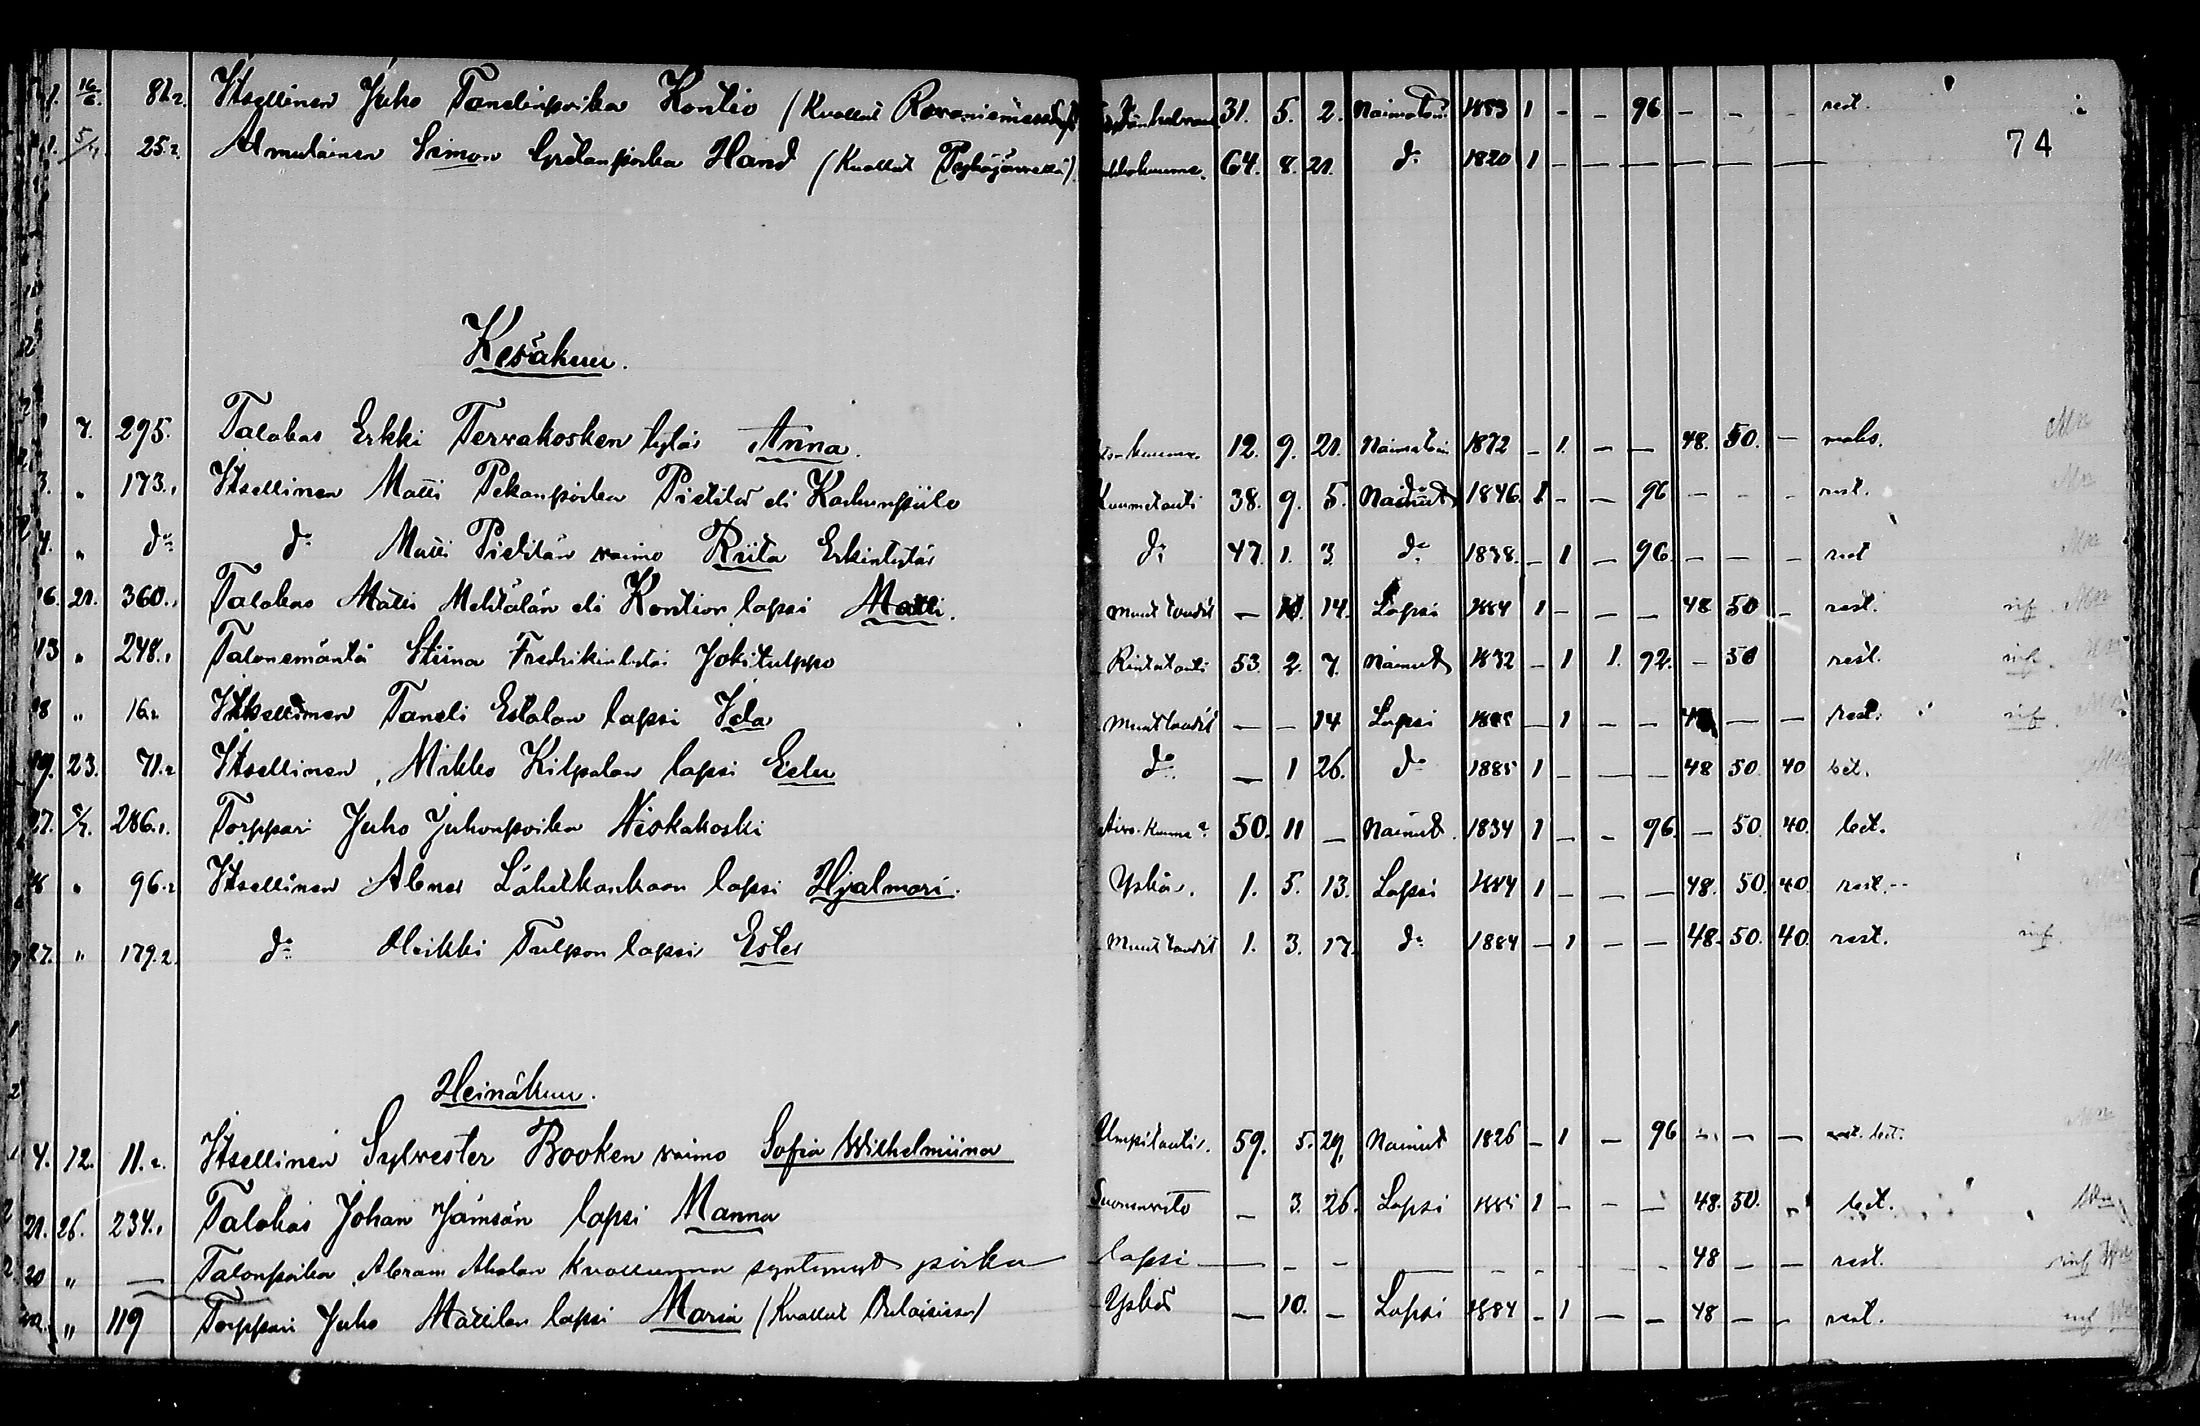 74
1. 16/6. 81.2. Itsellinen Juho Tanelinpoika Kontio (Kuollut 31. 5. 2. Naimatoin 1853 1 - - 96 - - - rest.
1. 25.2. Simon Hand (Kuollut 64. 8. 21. d:o 1820 1 - - - - - -
Kesäkuu.
7. 295. Talokas Erkki Tervakosken tytär Anna. 12. 9. 21. Naimatoin 1872 - 1. - - 48. 50. - maks.
3. " 173.1 Itsellinen Matti Pekanpoika Pietilä eli Karhunpiilo Kuumetauti 38. 9. 5. Nainut 1846. 1 - - 96 - - - rest.
4. " d:o d:o Matti Pietilän vaimo Riita Erkintytär d:o 47. 1. 3. d:o 1838. - 1 - 96. - - - rest
16. 21. 360.1 Talokas Matti Mehtälän eli Kontion lapsi Matti. Muut taudit - 14. Lapsi 1884 1 - - - 48 50 - rest.
13 " 248.1 Talonemäntä Stiina Fredrikintytär Jokitulppo Rintatauti 53. 2. 7. Nainut 1832 - 1 1. 92. - 50 rest.
18 " 16.2 Itsellinen Taneli Estolan lapsi Ida Muut taudit - - 14 Lapsi 1885 - 1 - - 48 - - rest.
19. 23. 71.2 Itsellinen Mikko Kilpalan lapsi d:o - 1 26. d:o 1885 1 - - - 48 50 40 bet.
27. 5/7. 286.1. Torppari Juho Juhonpoika Niskakoski 50. 11 - Nainut 1834 1 - - 96. - 50. 40. bet.
" 96.2 Itsellinen Abner Lähetkankaan lapsi Hjalmari. Yskä. 1. 5. 13. Lapsi 1884 1 - - - 48. 50. 40. rest.
27. " 179.2. d:o Heikki Tulpon lapsi Ester Muut taudit 1. 3. 17. d:o 1884 - 1 - - 48. 50. 40. rest.
Heinäkuu.
4. 12. 11.2. Itsellinen Sylvester Booken vaimo Sofia Wilhelmiina Umpitauti. 59. 5. 29. Nainut 1826 - 1 - 96 - - - bet.
21. 26. 234.1 Talokas Johan Jämsän lapsi Manna Suonenveto - 3. 26. Lapsi 1885 1 - - - 48. 50. - bet.
20 " - Talonpoika Abram Aholan kuolleena syntynyt poika lapsi - - - - 48 - - rest.
" 119 Torppari Juho Mattilan lapsi Maria (Kuollut Yskä - 10. - Lapsi 1884 - 1 - - 48 - - rest.